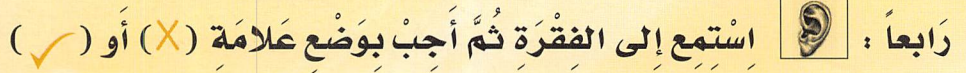 رَابعاً : اِسْتَمِع إِلى الفِقْرَةِ ثُمَّ أَجِبْ بِوَضْعِ عَلامَةِ (✗) أَو (✓)